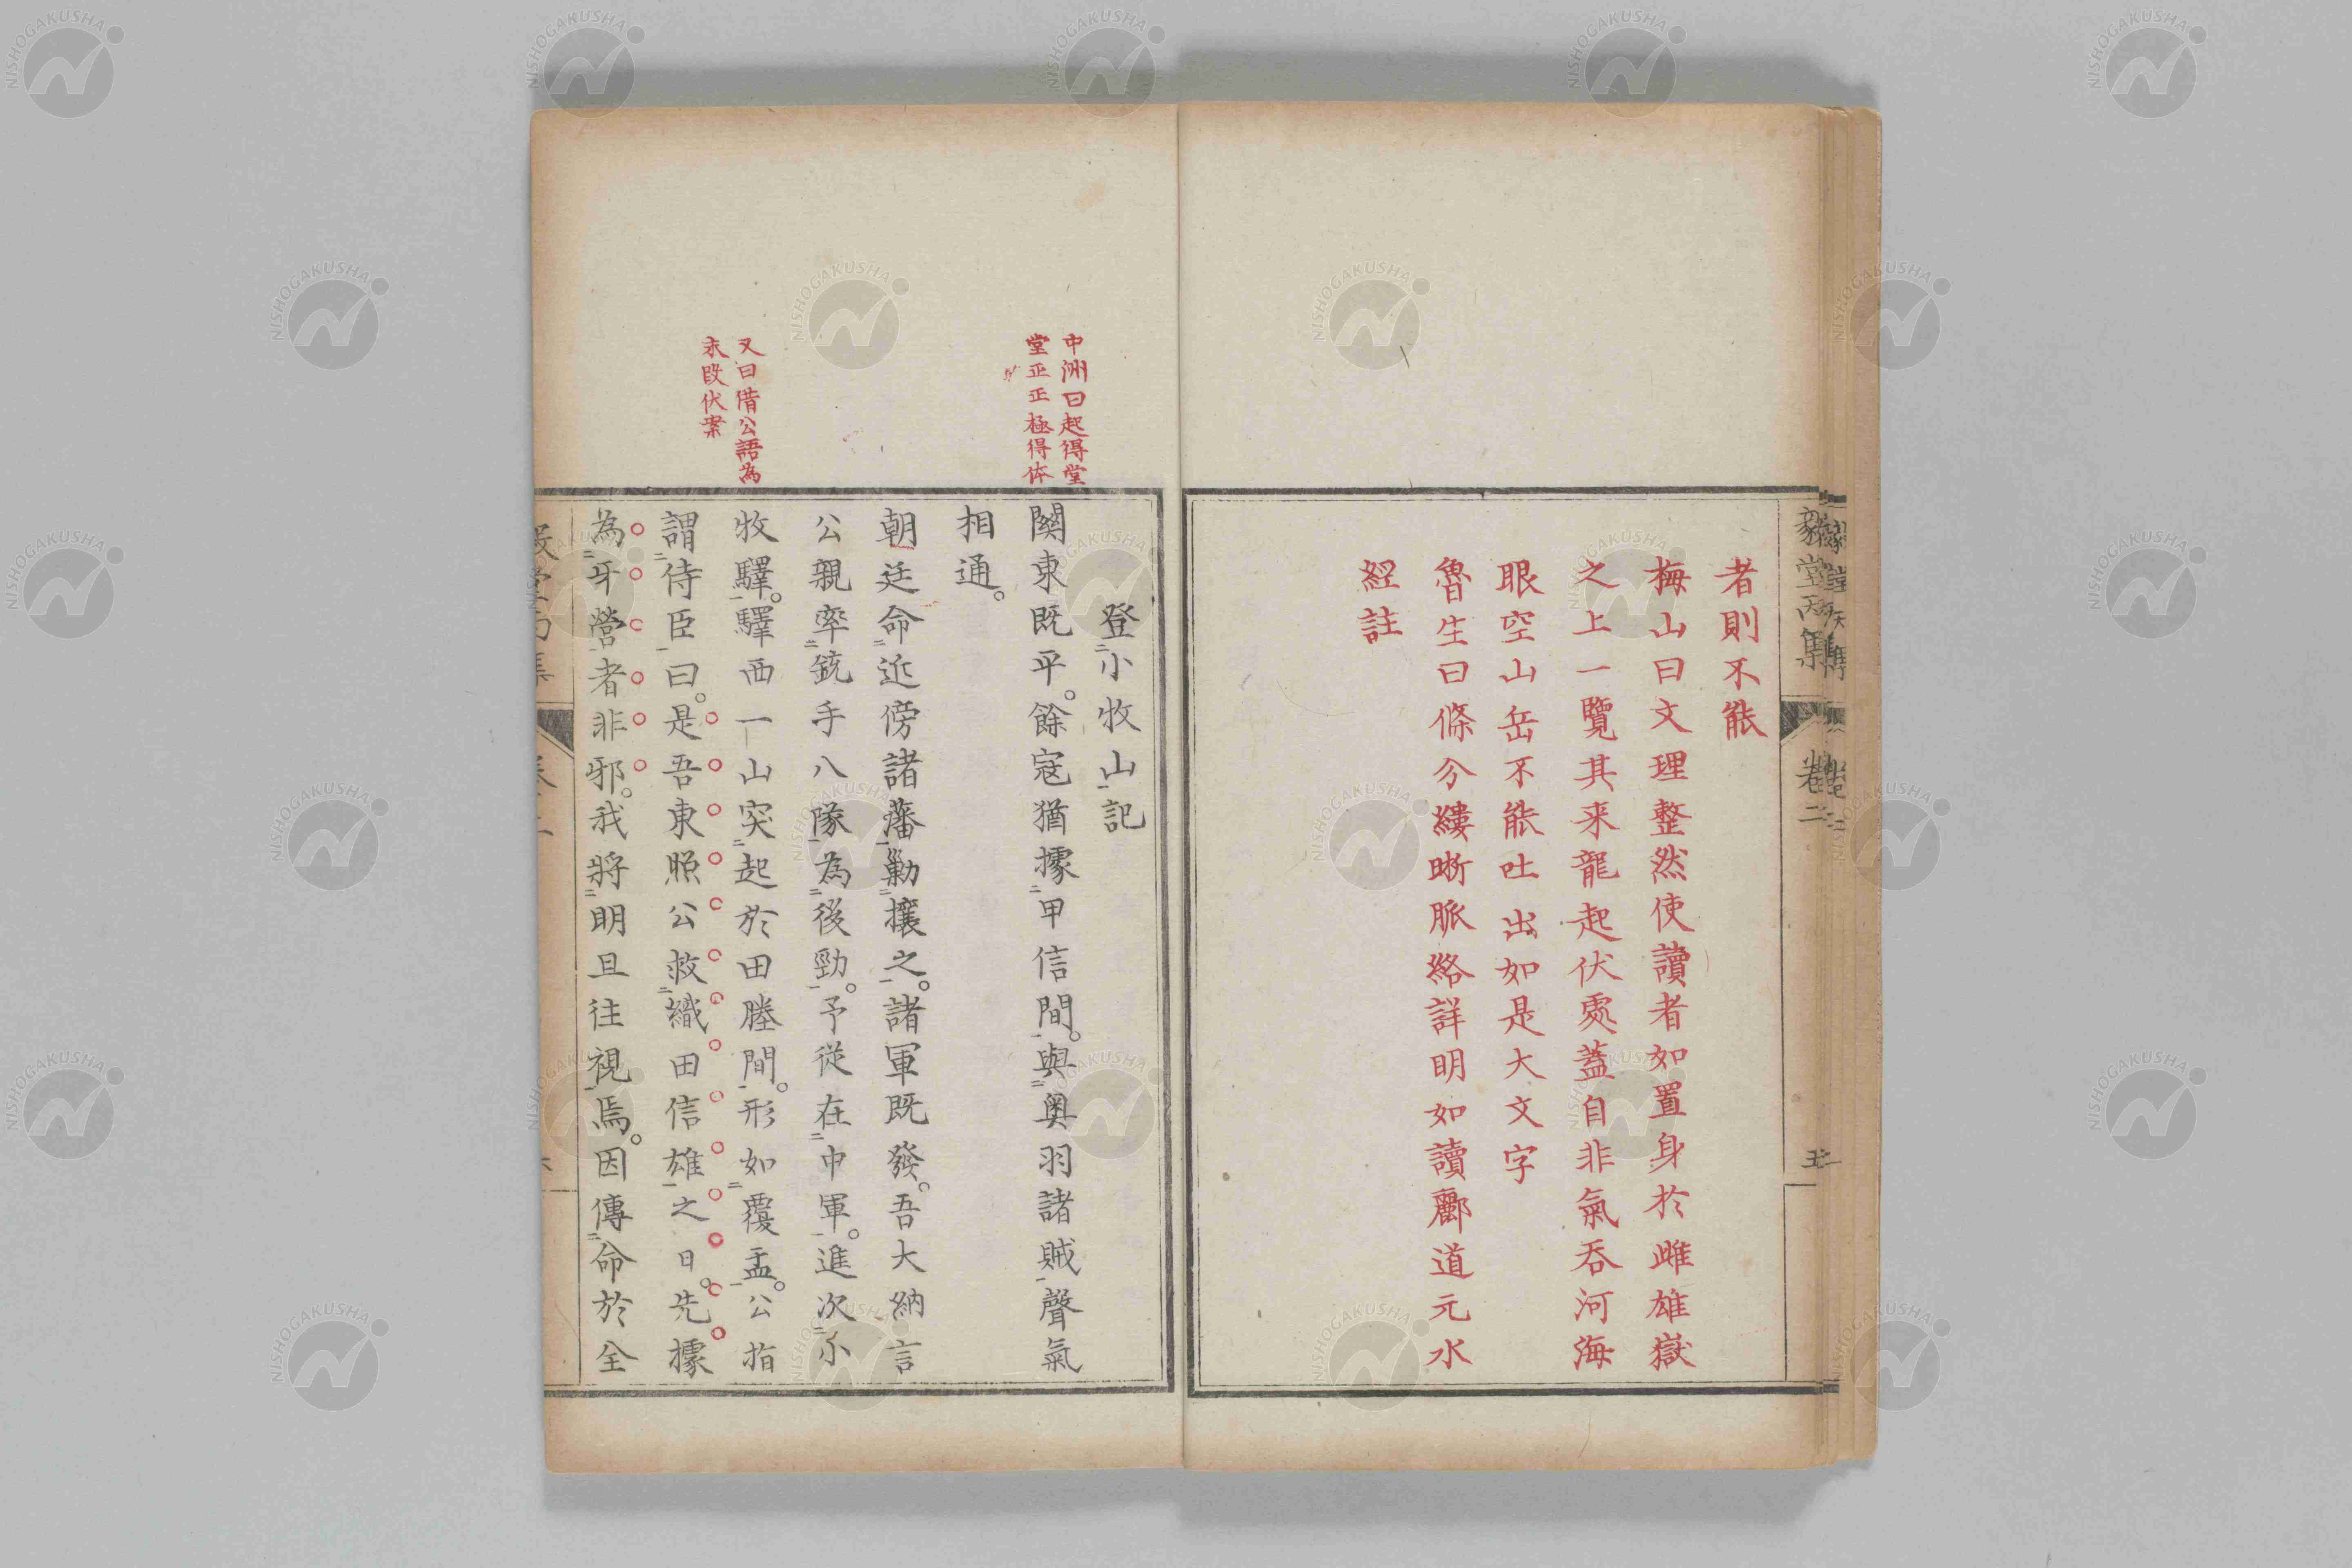 者則不能
梅山曰文理整然使讀者如置身於雌雄嶽
之上一覽其来龍起伏處蓋自非氣吞河海
眼空山岳不能吐出如是大文字
魯生曰條分縷晰脈絡詳明如讀酈道元水
經註
毅堂丙集
卷二
中洲曰起得堂
堂正正極得体
又曰借公語為
末段伏案
登小牧山記
関東既平。餘寇猶據甲信間。與奧羽諸賊聲氣
相通。
朝廷命近傍諸藩勦攘之。諸軍既發。吾大納言
公親率銃手八隊為後勁。予從在中軍。進次小
牧驛。驛西一山突起於田塍間。形如覆盂。公指
謂侍臣曰。是吾東照公救織田信雄之日。先據
為牙營者非邪。我將明旦往視焉。因傳命於全
NISHOGAKUSHA